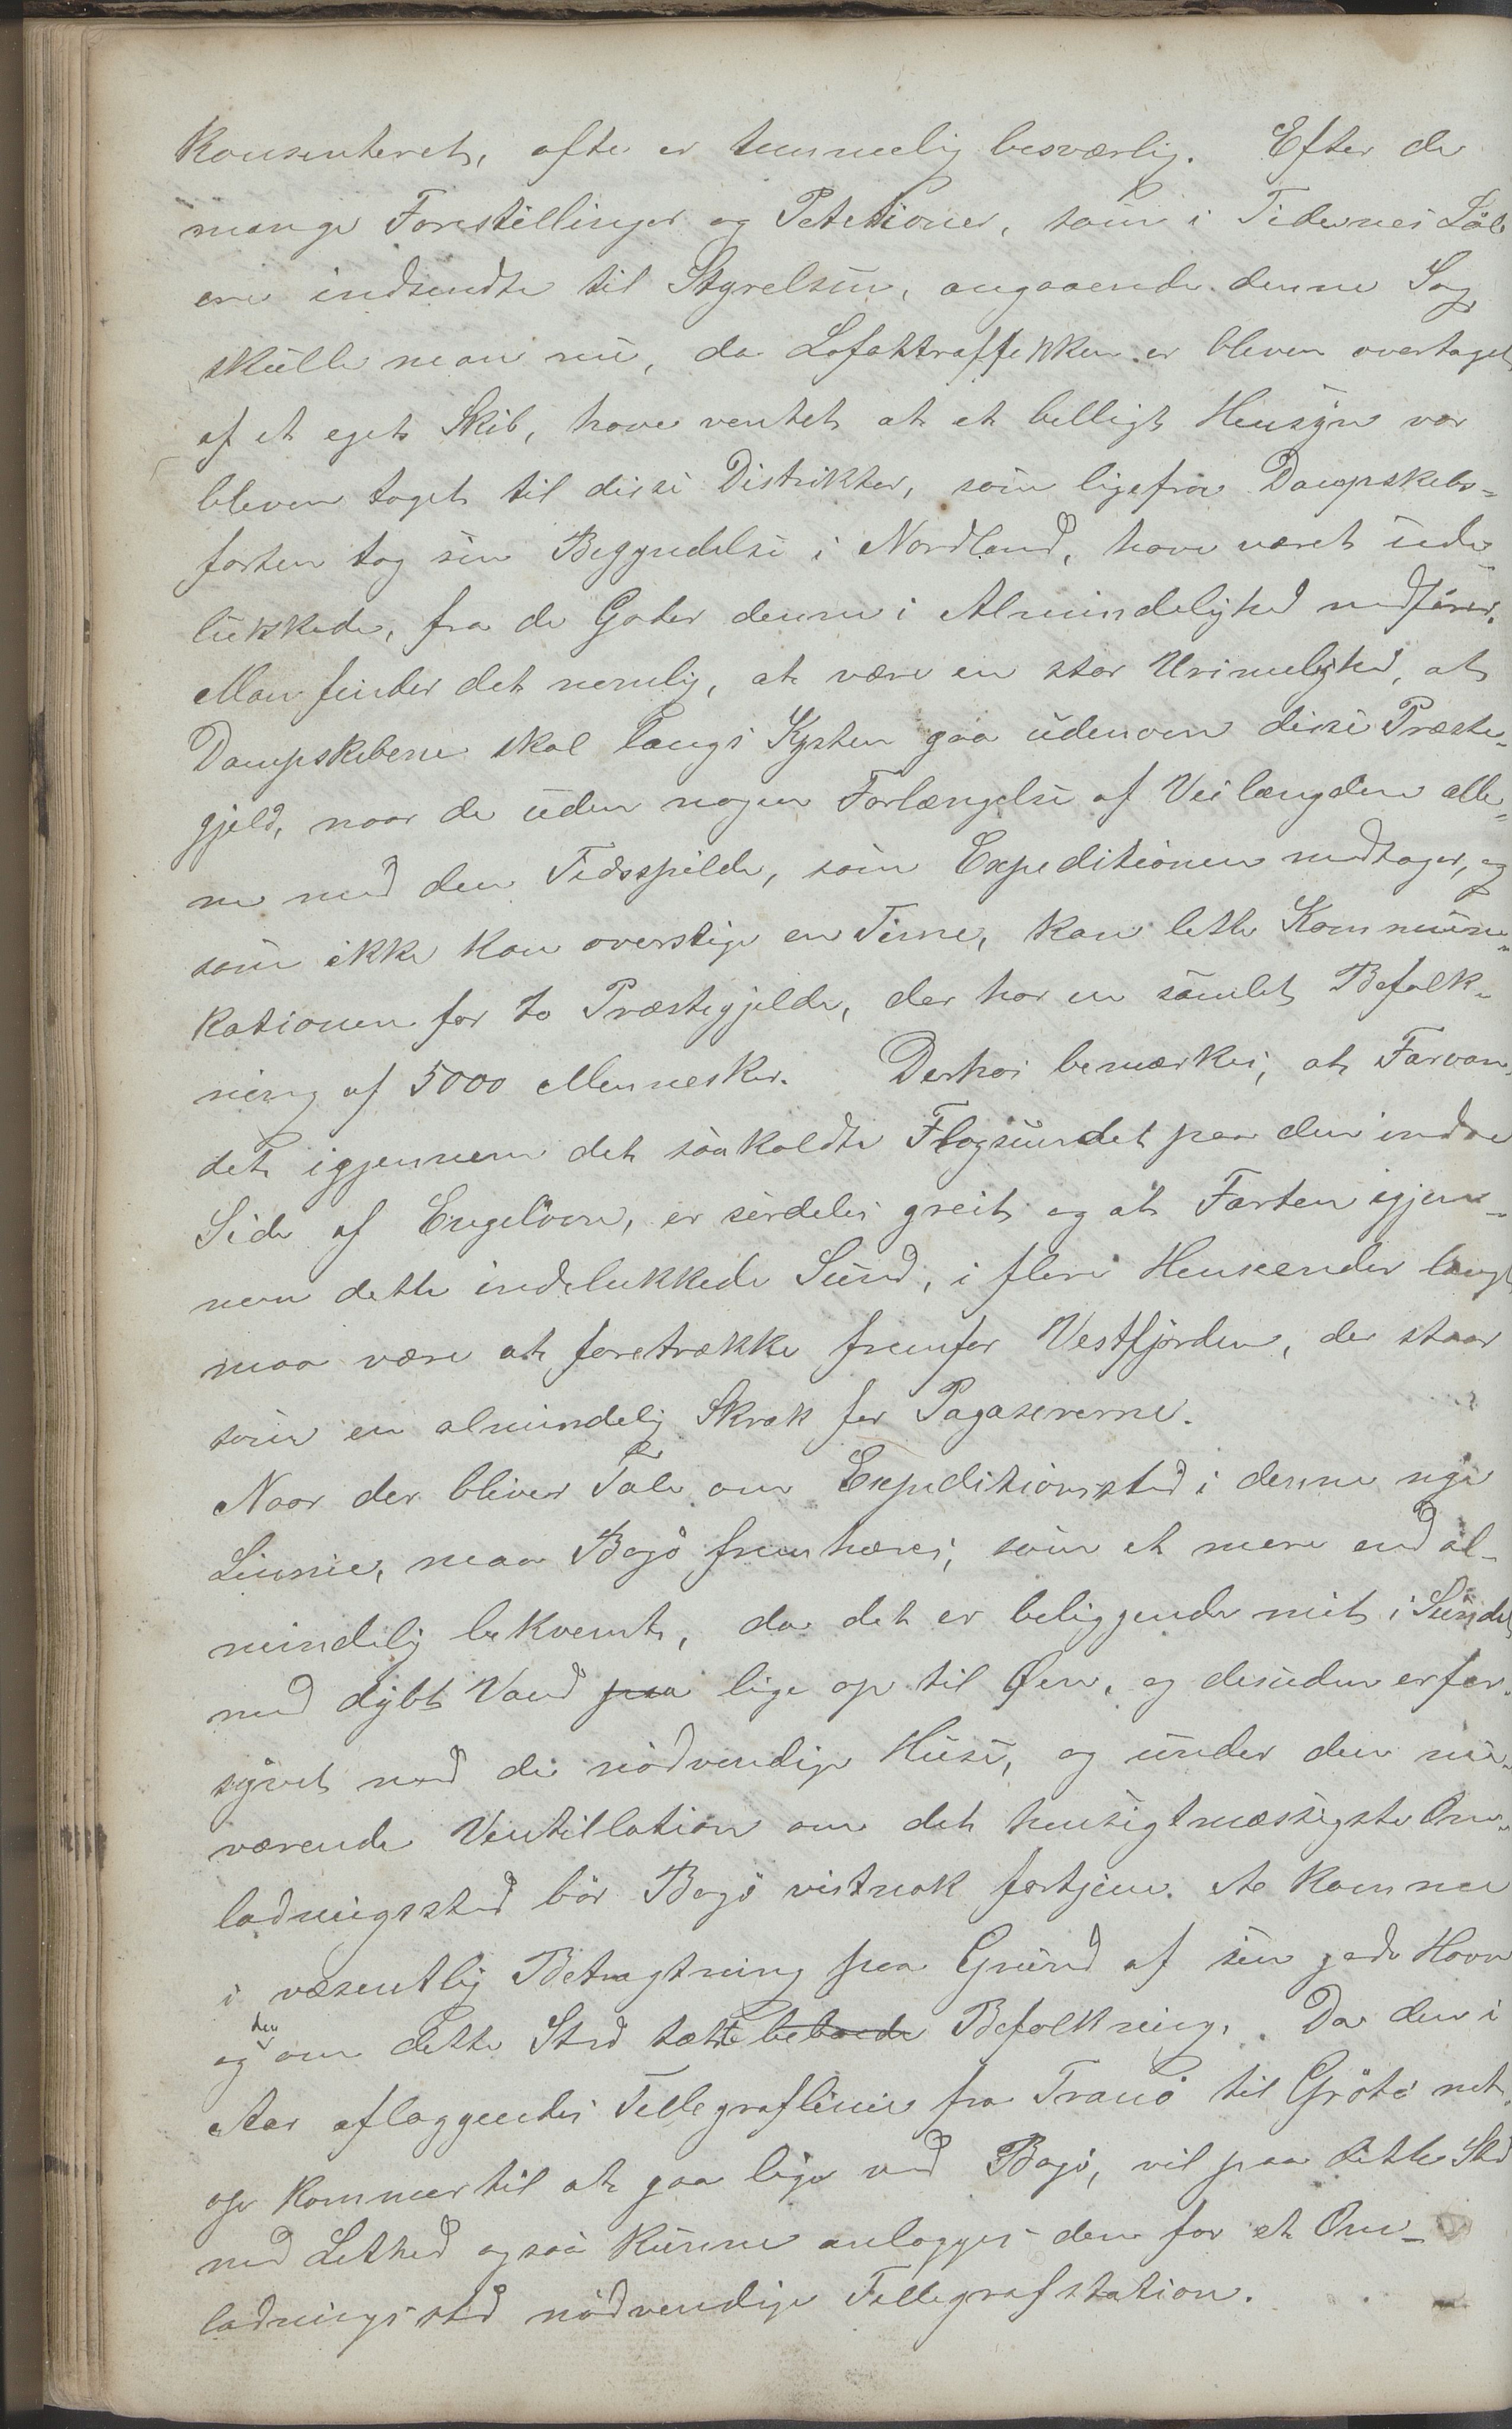 Konsenteret, ofte er temmelig besværlig. Efter de
mange Forestillinger og Petetioner, som i Tidernes Løb
ere indsendte til Styrelsen, angaaende denne Sag,
skulle man nu, da Lofottraffikken er bleven overtaget
af et eget Skib, have ventet at et billigt Hensyn var
bleven taget til disse Distrikter, som ligefra Dampskibs-
farten tog sin Begyndelse i Nordland, have været ude-
lukkede, fra de Goder denne i Almindelighed medfører.
Man finder det nemlig, at være en stor Urimelighed, at
Dampskibene skal langs Kysten gaa udenom disse Præste-
gjeld, naar de uden nogen Forlængelse af Veilængden alle-
ne med den Tidsspilde, som Expeditionen medtager, og
som ikke kan overstige en Time, kan lette Kommuni-
kationen for to Præstegjelde, der har en samlet Befolk-
ning af 5000 Mennesker. Derhos bemærkes, at Farvan-
det igjennem det saakaldte Flagsundet paa den indre
Side af Engeløen, er særdeles greit og at Farten igjen-
nem dette indelukkede Sund, i flere Henseender langt
maa være at foretrække fremfor Vestfjorden, der staar
som en almindelig Skræk for Pagasererne.
Naar der bliver Tale om Expeditionssted i denne nye
Linnie, maa Bogø fremhæves, som et mere end al-
mindelig bekvemt, da det er beliggende mit i Sundet
med dybt Vand paa lige op til Øen, og desuden er for-
synet med de nødvendige Huse, og under den nu-
værende Ventillation om det hensigtmæssigste Om-
ladningssted bör Bogø vistnok fortjene at komme
i væsentlig Betragtning paa Grund af sin gode Havn
og den om dette Sted tætte beboede Befolkning. Da den i
Aar aflæggendes Tellegraflinie fra Tranö til Gröto net-
op kommer til at gaa lige ved Bogø, vil paa dette Sted
med Lethed ogsaa kunne anlægges den for et Om-
ladningssted nödvendige Tellegrafstation.